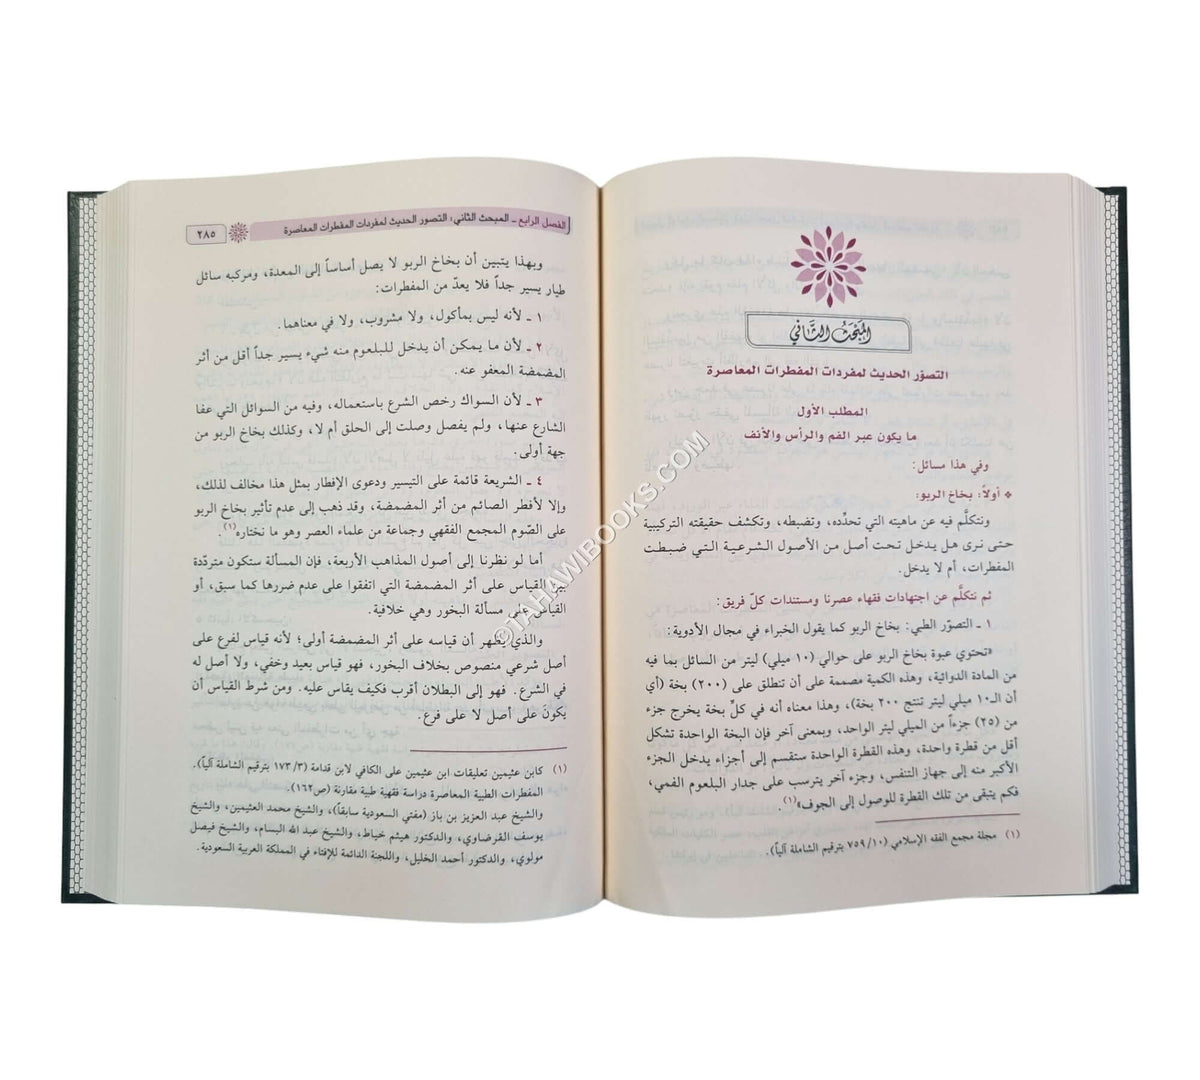 المبحث الثاني
التصوّر الحديث لمفردات المفطرات المعاصرة
المطلب الأول
ما يكون عبر الفم والرأس والأنف
وفي هذا مسائل:
* أولاً: بخاخ الربو:
ونتكلَّم فيه عن ماهيته التي تحدِّده، وتضبطه، وتكشف حقيقته التركيبية
حتى نرى هل يدخل تحت أصل من الأصول الشرعية التي ضبطت
المفطرات، أم لا يدخل.
ثم نتكلَّم عن اجتهادات فقهاء عصرنا ومستندات كلّ فريق:
١ ـ التصوّر الطبي: بخاخ الربو كما يقول الخبراء في مجال الأدوية:
«تحتوي عبوة بخاخ الربو على حوالي (١٠ ميلي) ليتر من السائل بما فيه
من المادة الدوائية، وهذه الكمية مصممة على أن تنطلق على (٢٠٠) بخة (أي
أن الـ١٠ ميلي ليتر تنتج ٢٠٠ بخة)، وهذا معناه أنه في كلِّ بخة يخرج جزء
من (٢٥) جزءاً من الميلي ليتر الواحد، وبمعنى آخر فإن البخة الواحدة تشكل
أقل من قطرة واحدة، وهذه القطرة الواحدة ستقسم إلى أجزاء يدخل الجزء
الأكبر منه إلى جهاز التنفس، وجزء آخر يترسب على جدار البلعوم الفمي،
فكم يتبقى من تلك القطرة للوصول إلى الجوف»(١).
(١) مجلة مجمع الفقه الإسلامي (٧٥٩/١٠ بترقيم الشاملة آلياً).
الفصل الرابع ـ المبحث الثاني: التصور الحديث لمفردات المفطرات المعاصرة
٢٨٥
وبهذا يتبين أن بخاخ الربو لا يصل أساساً إلى المعدة، ومركبه سائل
طيار يسير جداً فلا يعدّ من المفطرات:
١ ـ لأنه ليس بمأكول، ولا مشروب، ولا في معناهما.
٢ ـ لأن ما يمكن أن يدخل للبلعوم منه شيء يسير جداً أقل من أثر
المضمضة المعفو عنه.
٣ ـ لأن السواك رخص الشرع باستعماله، وفيه من السوائل التي عفا
الشارع عنها، ولم يفصل وصلت إلى الحلق أم لا، وكذلك بخاخ الربو من
جهة أولى.
٤ ـ الشريعة قائمة على التيسير ودعوى الإفطار بمثل هذا مخالف لذلك،
وإلا لأفطر الصائم من أثر المضمضة، وقد ذهب إلى عدم تأثير بخاخ الربو
على الصّوم المجمع الفقهي وجماعة من علماء العصر وهو ما نختاره(١).
أما لو نظرنا إلى أصول المذاهب الأربعة، فإن المسألة ستكون متردّدة
بين القياس على أثر المضمضة التي اتفقوا على عدم ضررها كما سبق، أو
القياس على مسألة البخور وهي خلافية.
والذي يظهر أن قياسه على أثر المضمضة أولى؛ لأنه قياس لفرع على
أصل شرعي منصوص بخلاف البخور، فهو قياس بعيد وخفي، ولا أصل له
في الشرع. فهو إلى البطلان أقرب فكيف يقاس عليه. ومن شرط القياس أن
يكون على أصل لا على فرع.
(١) كابن عثيمين تعليقات ابن عثيمين على الكافي لابن قدامة (١٧٣/٣ بترقيم الشاملة آلياً).
المفطرات الطبية المعاصرة دراسة فقهية طبية مقارنة (ص١٦٢).
والشيخ عبد العزيز بن باز (مفتي السعودية سابقاً)، والشيخ محمد العثيمين، والشيخ
يوسف القرضاوي، والدكتور هيثم خياط، والشيخ عبد الله البسام، والشيخ فيصل
مولوي، والدكتور أحمد الخليل، واللجنة الدائمة للإفتاء في المملكة العربية السعودية.
©TAHAWIBOOKS.COM